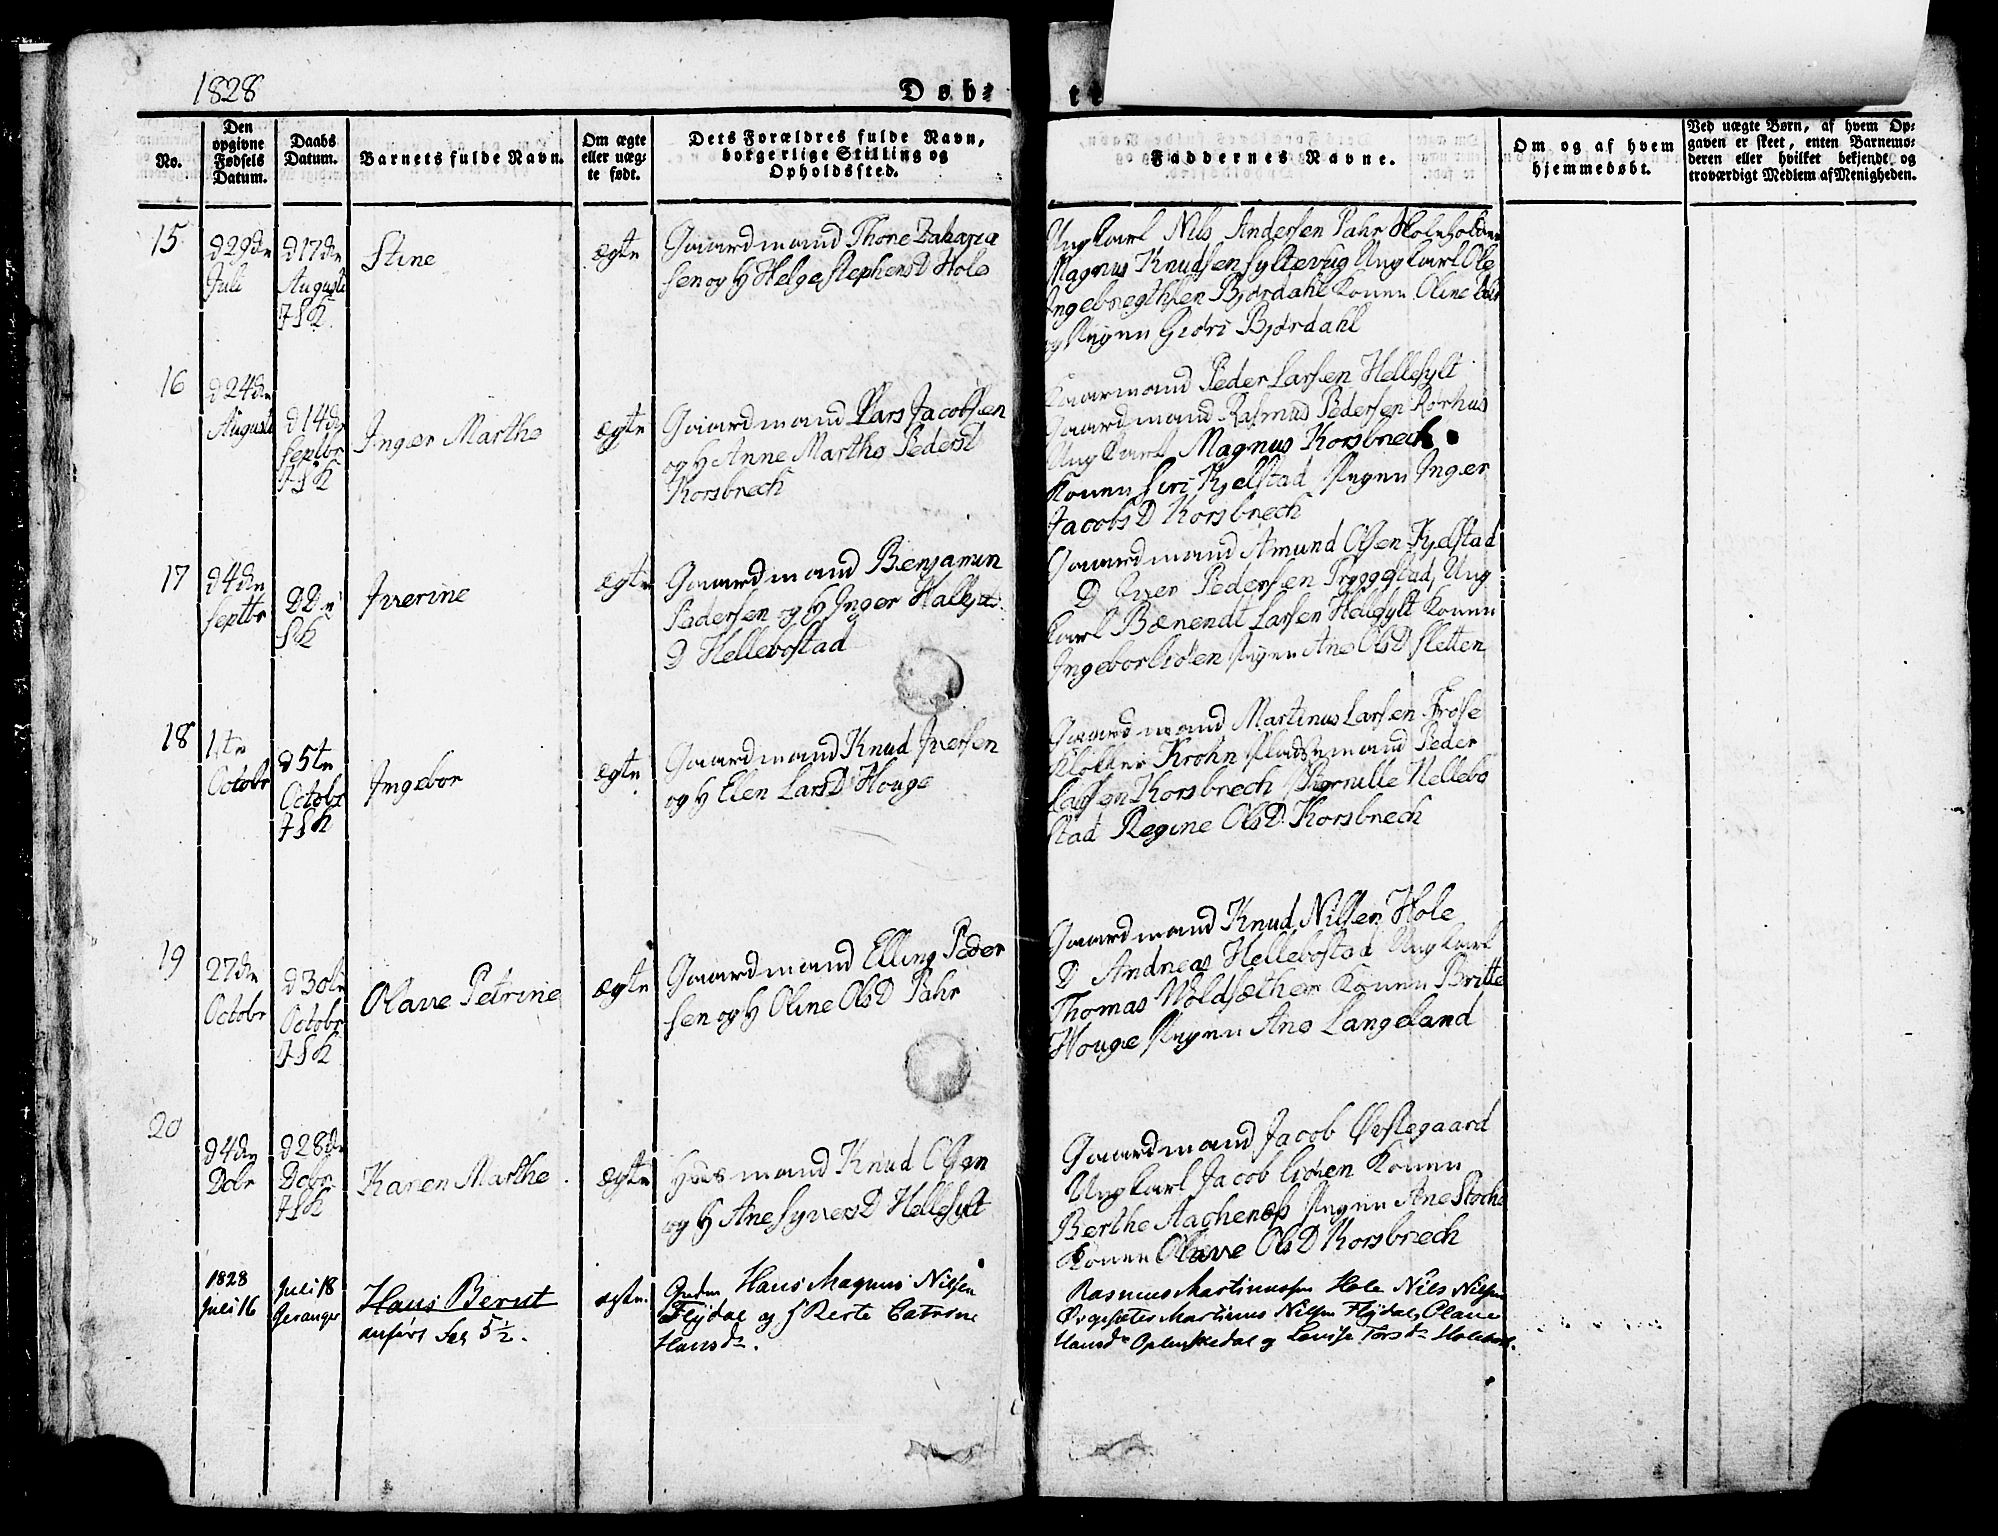 1828
Døb=
No.
Den
opgivne
Fødsels
Datum.
Daabs
Datum.
Barnets fulde Navn.
Om ægte
eller uæg=
te født.
Dets Forældres fulde Navn,
borgerlige Stilling og
Opholdssted.
Faddernes Navne.
Om og af hvem
hjemmedøbt.
Ved uægte Børn, af hvem Op=
gaven er skeet, enten Barnemo=
deren eller hvilket bekjendt og
troværdigt Medlem af Menigheden.
15
d 29de
Juli
d 17de
August
J S K
Stine
ægte
Gaardmand Thore Zacharia
sen og H Helge Stephens D Hole
Ungkarl Nils Andersen Pahr
Magnus Knudsen Syltevug Ungkarl Ole
Ingebregthsen Bjørdahl Konen Oline
og Pigen Giøri Bjørdahl
16
d 24de
August
d 14de
Septbr
J S K
Inger Marthe
ægte
Gaardmand Lars Jacobsen
og H Anne Marthe Peders D
Korsbrech
Gaarmand Peder Larsen Hellesylt
Gaardmand Rasmus Pedersen Rørhus
Ungkarl Magnus Korsbrech
Konen Siri Kjelstad Pigen Inger
Jacobs D Korsbrech
17
d 4de
Septbr
D Dn
S K
Iverine
ægte
Gaardmand Benjamin
Pedersen og H Inger
D Hellebostad
Gaardmand Amund Olsen Kjelstad
D Iver Pedersen Tryggestad, Ung
karl Bærendt Larsen Hellesylt Konen
Ingebor Liden Pigen Ane Ols D Sletten
18
1te
Octobr
d 5te
Octobr
J S K
Ingebor
ægte
Gaardmand Knud Iversen
og H Elen Lars D Houge
Gaardmand Martinus Larsen Frøse
Klokker Krohn Pladsmand Peder
Larsen Korsbrech Pernille Hellebo
stad Regine Ols D Korsbrech
19
27de
Octobr
d 30te
Octobr
J S K
Olave Petrine
ægte
Gaardmand Elling Peder
sen og H Oline Ols D Pahr
Gaardmand Knud Nilsen Hole
D Andreas Hellebostad Ungkarl
Thomas Woldsæther Konen Britte
Houge Pigen Ane Langeland
20
d 4de
Dcbr
d 28de
Dcbr
J S K
Karen Marthe
ægte
Huusmand Knud Olsen
og H Ane Syvers D Hellesylt
Gaardmand Jacob Øvstegaard
Ungkarl Jacob Lidén Konen
Berthe Aachenæs Pigen Ane Stocke
Konen Olave Ols D Korsbrech
1828
Juli 16
Juli 18
Geranger
Hans Bernt
anført Sag 5½.
ægte.
Hans Magnus Nilsen
Flydal og H Berte Catrine
Hansdr.
Rasmus Martinussen Hole Nils Nilsen
Ørgesæter Martinus Nilsen Flydal, Olave
Hansdr Oplenskedal og Lovise Torsdr